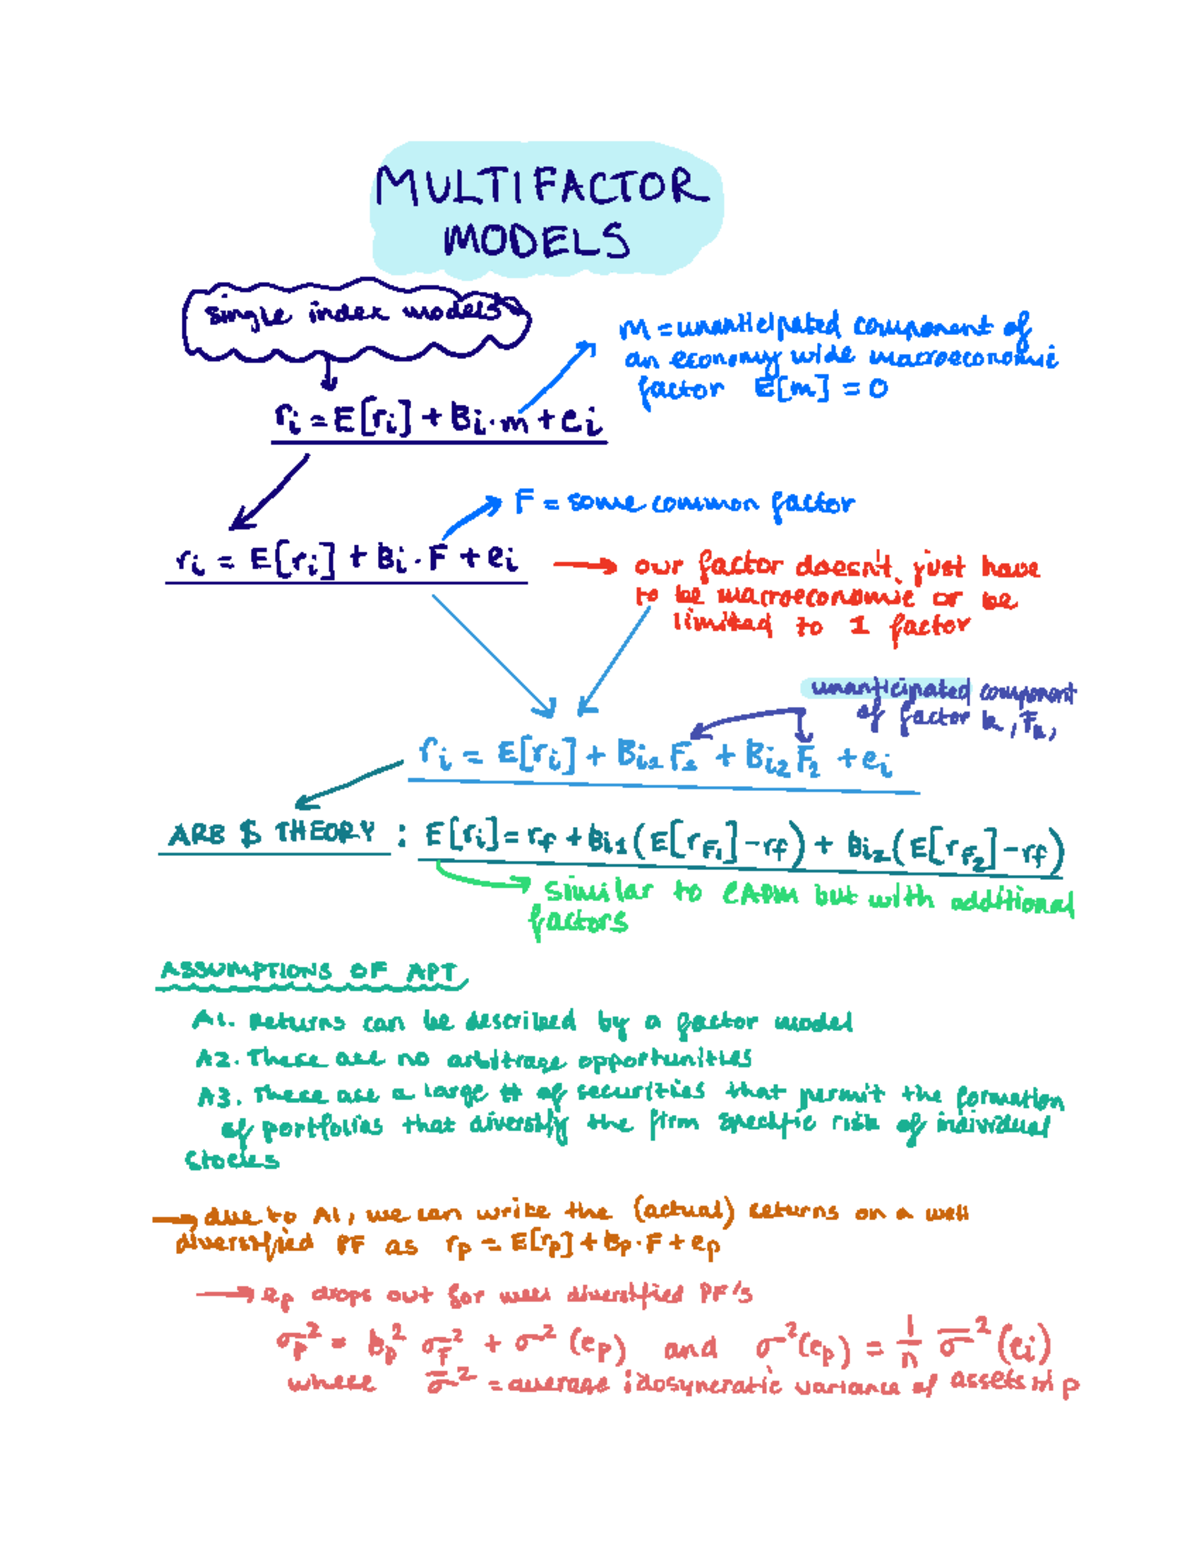 MULTIFACTOR
MODELS
single index models
m = unanticipated component of
an economy wide macroeconomic
factor E[m] = 0
ri = E[ri] + Bi·m + ei
F = some common factor
ri = E[ri] + Bi·F + ei
our factor doesn't just have
to be macroeconomic or be
limited to 1 factor
unanticipated component
of factor k, Fk,
ri = E[ri] + Bi1 F1 + Bi2 F2 + ei
ARB $ THEORY : E[ri] = rf + Bi1(E[rF1] - rf) + Bi2(E[rF2] - rf)
similar to CAPM but with additional
factors
ASSUMPTIONS OF APT
A1. Returns can be described by a factor model
A2. There are no arbitrage opportunities
A3. There are a large # of securities that permit the formation
of portfolios that diversify the firm specific risk of individual
stocks
→ due to A1, we can write the (actual) returns on a well
diversified PF as rp = E[rp] + Bp·F + ep
→ ep drops out for well diversified PF's
σp² = bp² σF² + σ²(ep) and σ²(ep) = 1/n σ̄²(ei)
where σ̄² = average idosyncratic variance of assets in p